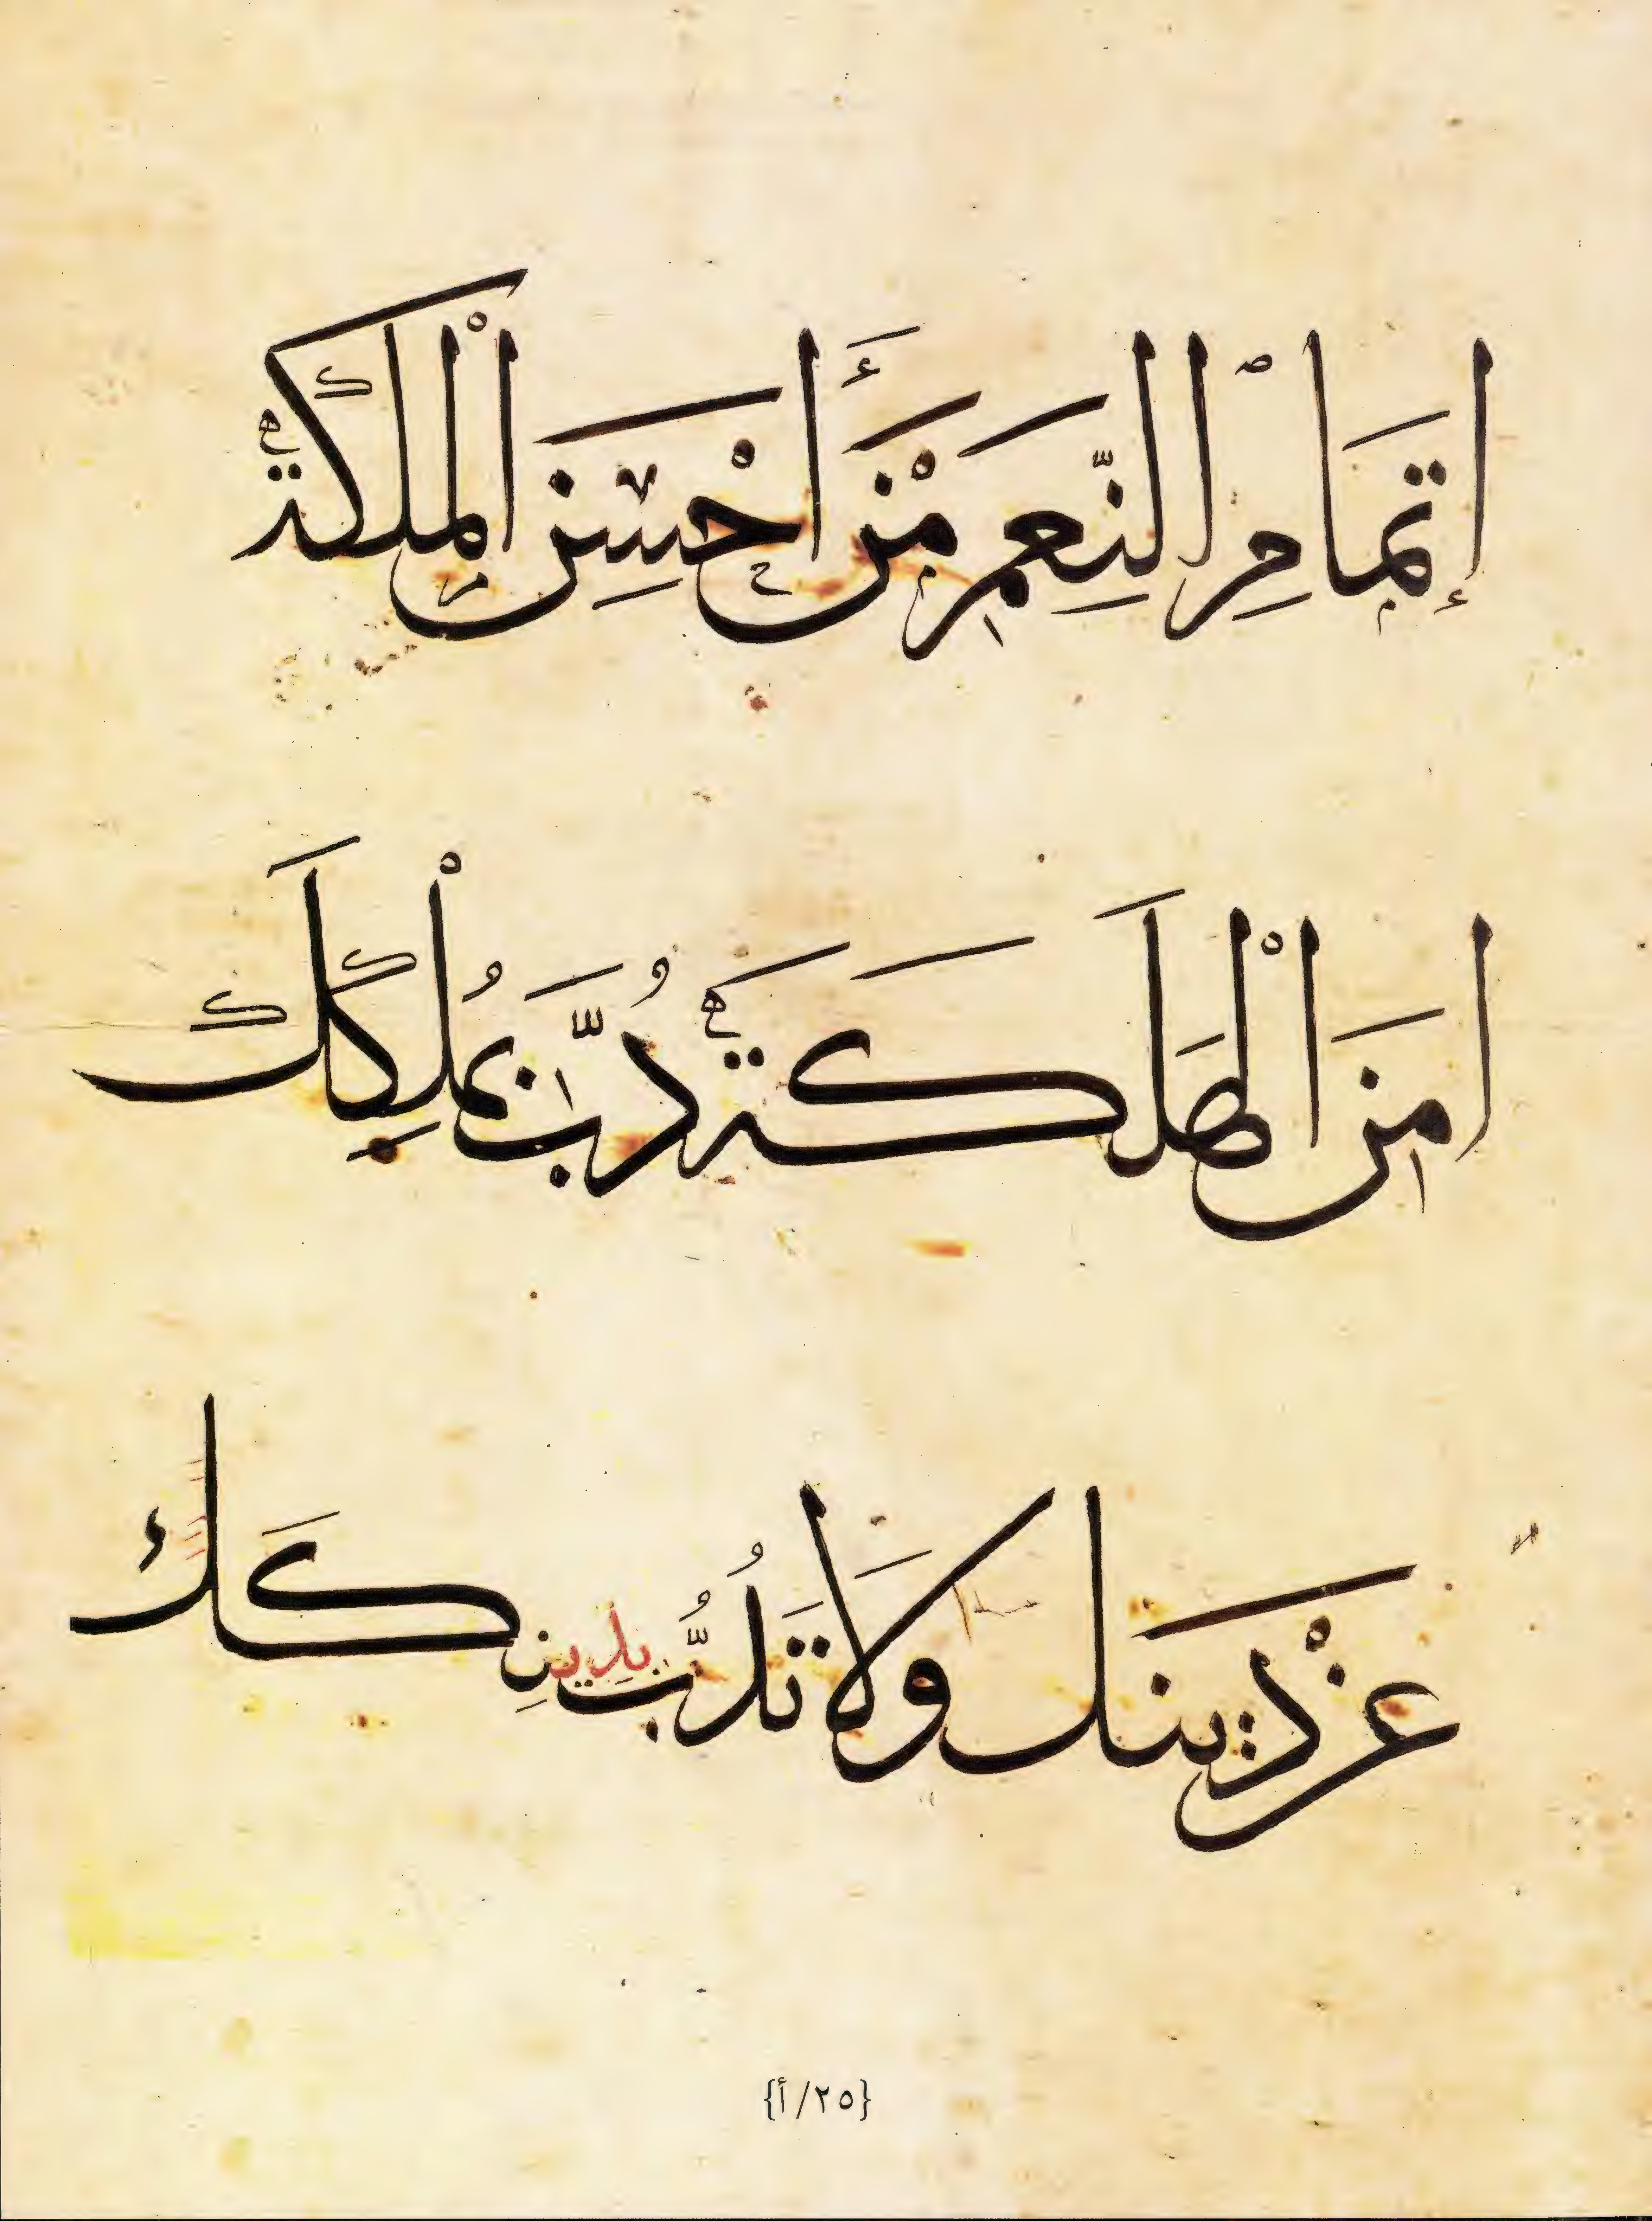 إتمام النِّعَمِ مَنْ أَحْسَنَ الْمَلَكَة
امِنَ الْهَلَكَةَ دُبَّ بمُلْكِكَ
عَنْ دينك ولَا تَدُبَّ بدينِكَ
{٢٥/أ}